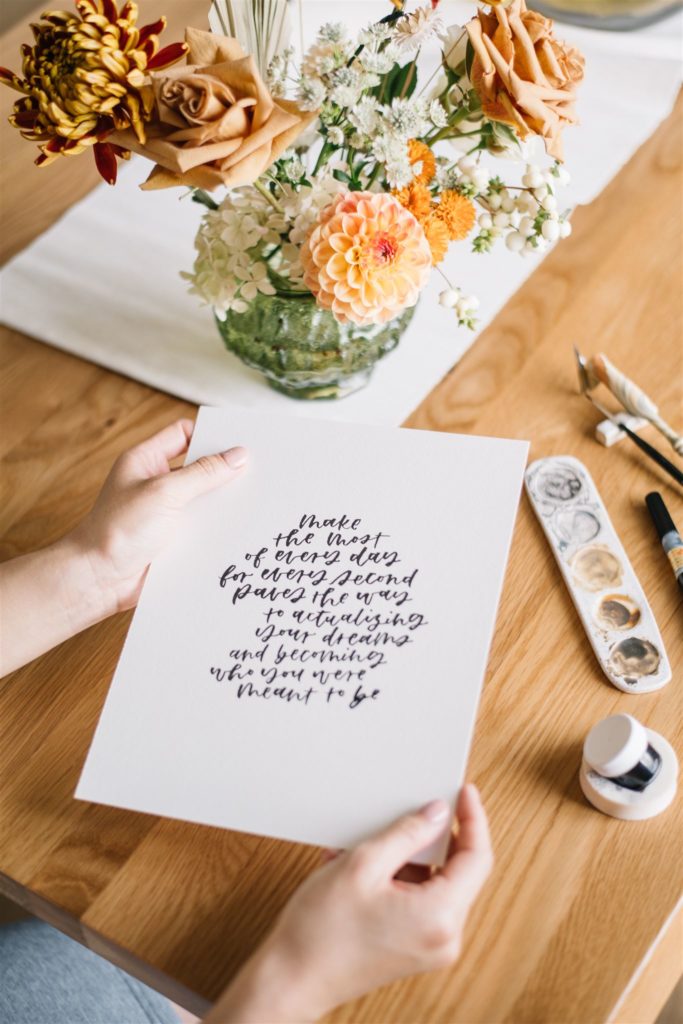 make
the most
of every day
for every second
paves the way
to actualizing
your dreams
and becoming
who you were
meant to be